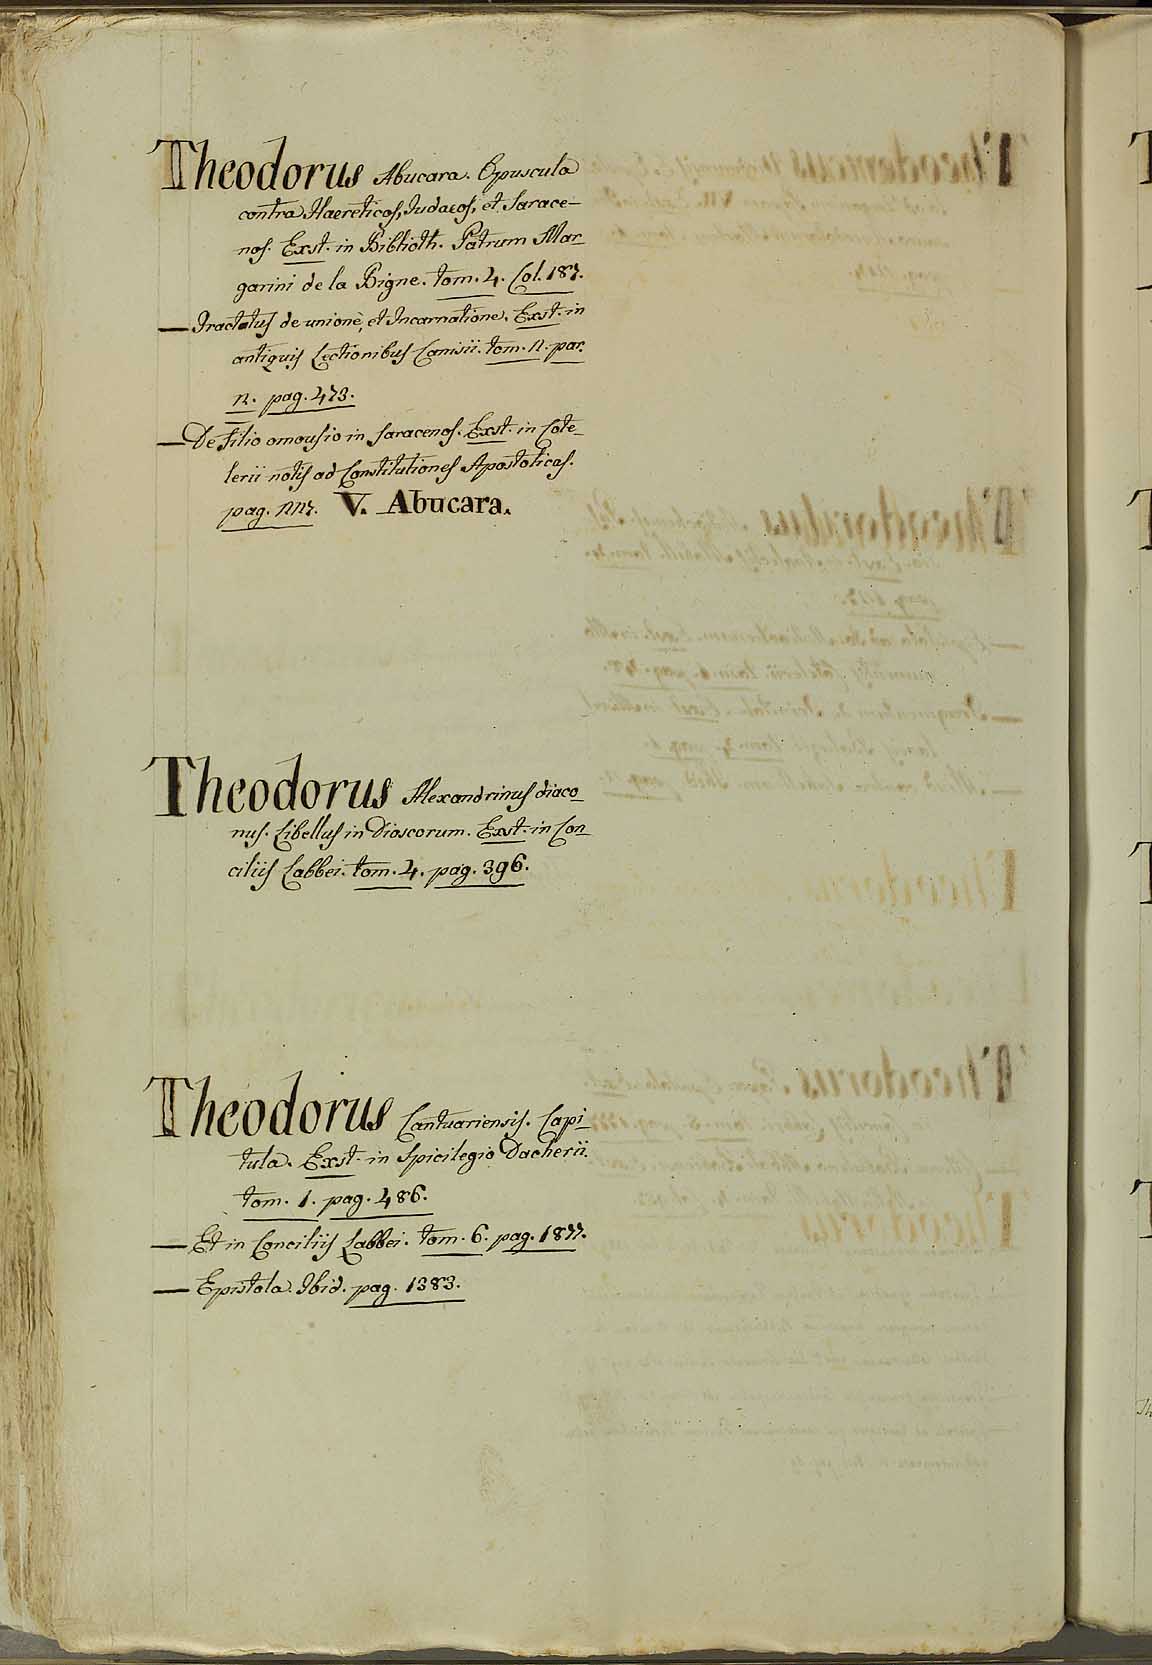 Theodorus Abucara. Opuscula
contra Haereticos, Judaeos, et Sarace-
nos. Exst. in Biblioth. Patrum Mar-
garini de la Bigne. tom. 4. Col. 187.
— Tractatus de unione, et Incarnatione. Exst. in
antiquis Lectionibus Canisii. tom. 11. par.
11. pag. 473.
— De Filio omousio in Saracenos. Exst. in Cote-
lerii notis ad Constitutiones Apostolicas.
pag. V. Abucara.
Theodorus Alexandrinus diaco-
nus. Libellus in Dioscorum. Exst. in Con-
ciliis Labbei. tom. 4. pag. 396.
Theodorus Cantuariensis. Capi-
tula. Exst. in Spicilegio Dacherii.
tom. 1. pag. 486.
— Et in Conciliis Labbei. tom. 6. pag. 1877.
— Epistola. Ibid. pag. 1383.